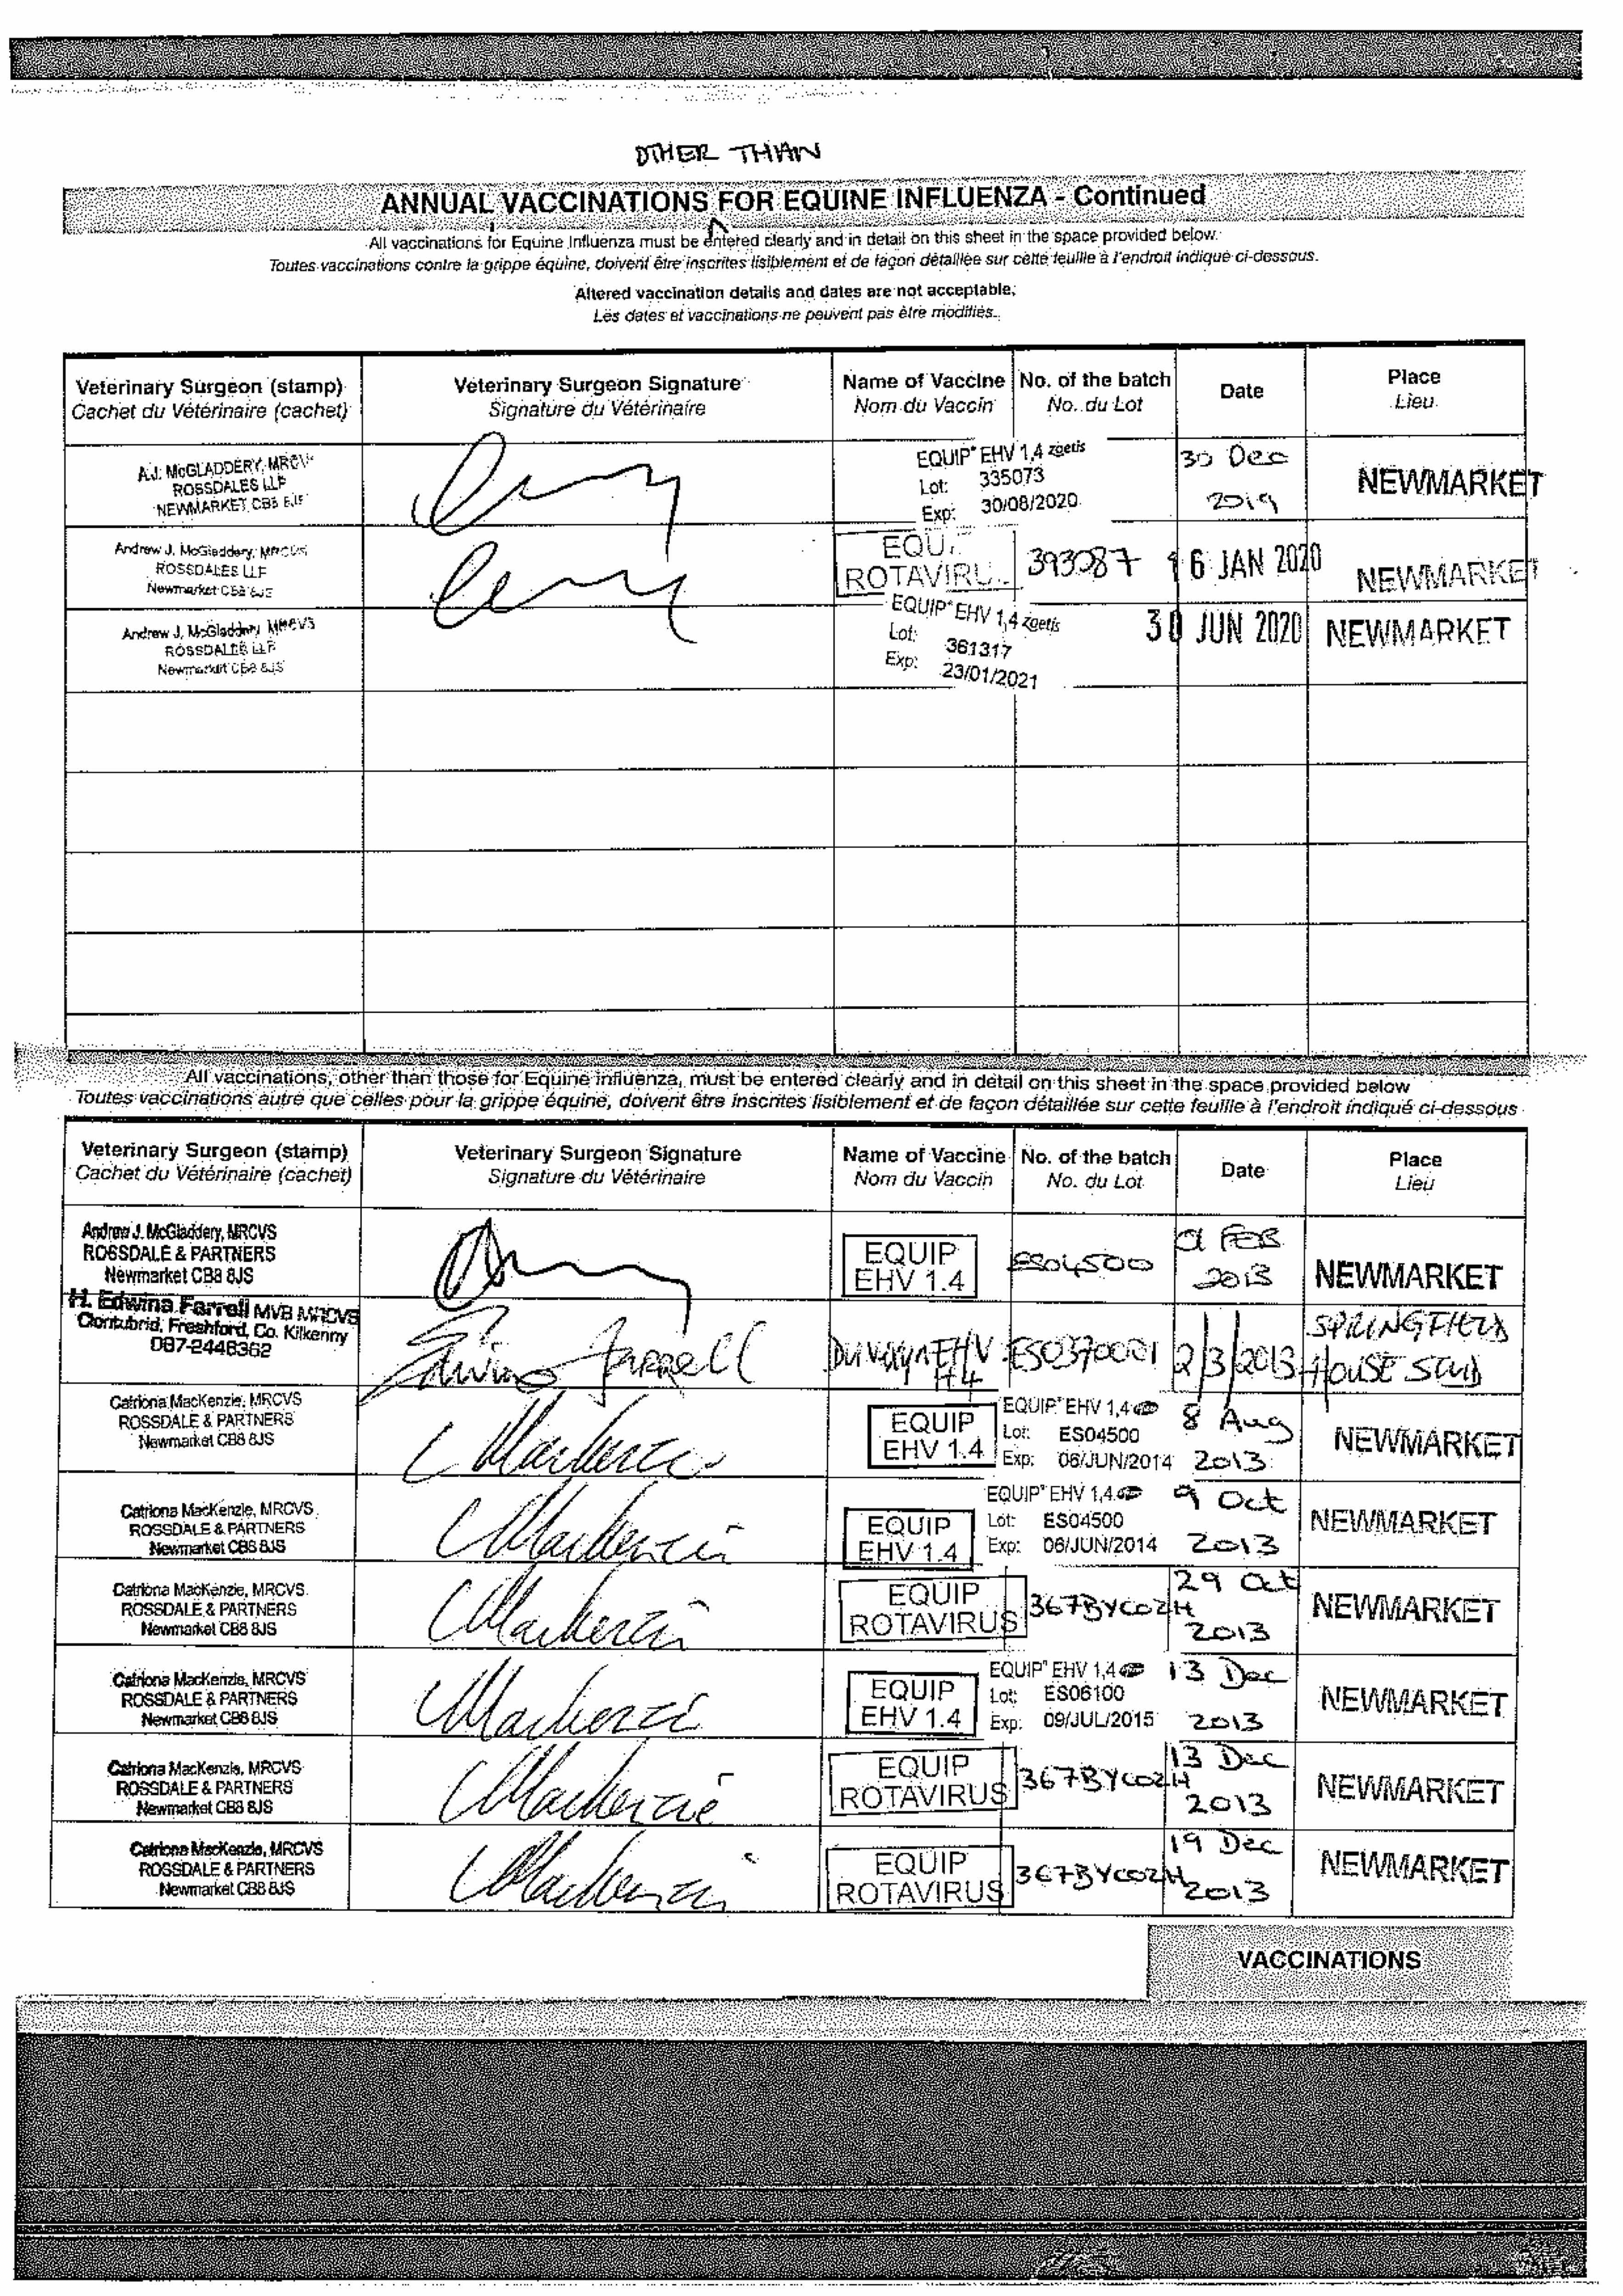 OTHER THAN
ANNUAL VACCINATIONS FOR EQUINE INFLUENZA - Continued
All vaccinations for Equine Influenza must be entered clearly and in detail on this sheet in the space provided below.
Toutes vaccinations contre la grippe équine, doivent être inscrites lisiblement et de façon détaillée sur cette feuille à l'endroit indiqué ci-dessous.
Altered vaccination details and dates are not acceptable.
Les dates et vaccinations ne peuvent pas être modifiés.
Veterinary Surgeon (stamp) Veterinary Surgeon Signature Name of Vaccine No. of the batch Date Place
Cachet du Vétérinaire (cachet) Signature du Vétérinaire Nom du Vaccin No. du Lot Lieu
A.J. McGLADDERY, MRCVS EQUIP EHV 1,4 zoetis 30 Dec
ROSSDALES LLP Lot: 335073 NEWMARKET
NEWMARKET CB8 8JS Exp: 30/08/2020 2019
Andrew J. McGladdery, MRCVS EQU
ROSSDALES LLP ROTAVIRU 393087 16 JAN 2020 NEWMARKET
Newmarket CB8 8JS
Andrew J. McGladdery MRCVS EQUIP EHV 1,4 zoetis 30 JUN 2020 NEWMARKET
ROSSDALES LLP Lot: 361317
Newmarket CB8 8JS Exp: 23/01/2021
All vaccinations, other than those for Equine influenza, must be entered clearly and in detail on this sheet in the space provided below
Toutes vaccinations autre que celles pour la grippe équine, doivent être inscrites lisiblement et de façon détaillée sur cette feuille à l'endroit indiqué ci-dessous
Veterinary Surgeon (stamp) Veterinary Surgeon Signature Name of Vaccine No. of the batch Date Place
Cachet du Vétérinaire (cachet) Signature du Vétérinaire Nom du Vaccin No. du Lot Lieu
Andrew J. McGladdery, MRCVS FEB
ROSSDALE & PARTNERS EQUIP ES04500 2013 NEWMARKET
Newmarket CB8 8JS EHV 1.4
H. Edwina Farrell MVB MRCVS SPRINGFIELD
Clontubrid, Freshford, Co. Kilkenny Edwina Farrell Duvaxyn EHV 2/3/2013 HOUSE STUD
087-2448362
Catriona MacKenzie, MRCVS EQUIP EHV 1,4 8 Aug
ROSSDALE & PARTNERS EQUIP Lot: ES04500 NEWMARKET
Newmarket CB8 8JS CMackenzie EHV 1.4 Exp: 06/JUN/2014 2013
Catriona MacKenzie, MRCVS EQUIP EHV 1,4 9 Oct
ROSSDALE & PARTNERS EQUIP Lot: ES04500 NEWMARKET
Newmarket CB8 8JS CMackenzie EHV 1.4 Exp: 06/JUN/2014 2013
Catriona MacKenzie, MRCVS EQUIP 29 Oct
ROSSDALE & PARTNERS ROTAVIRUS 367BYC02H NEWMARKET
Newmarket CB8 8JS CMackenzie 2013
Catriona MacKenzie, MRCVS EQUIP EHV 1,4 13 Dec
ROSSDALE & PARTNERS EQUIP Lot: ES06100 NEWMARKET
Newmarket CB8 8JS CMackenzie EHV 1.4 Exp: 09/JUL/2015 2013
Catriona MacKenzie, MRCVS EQUIP 13 Dec
ROSSDALE & PARTNERS ROTAVIRUS 367BYC02H NEWMARKET
Newmarket CB8 8JS CMackenzie 2013
Catriona MacKenzie, MRCVS EQUIP 19 Dec
ROSSDALE & PARTNERS ROTAVIRUS 367BYC02H NEWMARKET
Newmarket CB8 8JS CMackenzie 2013
VACCINATIONS